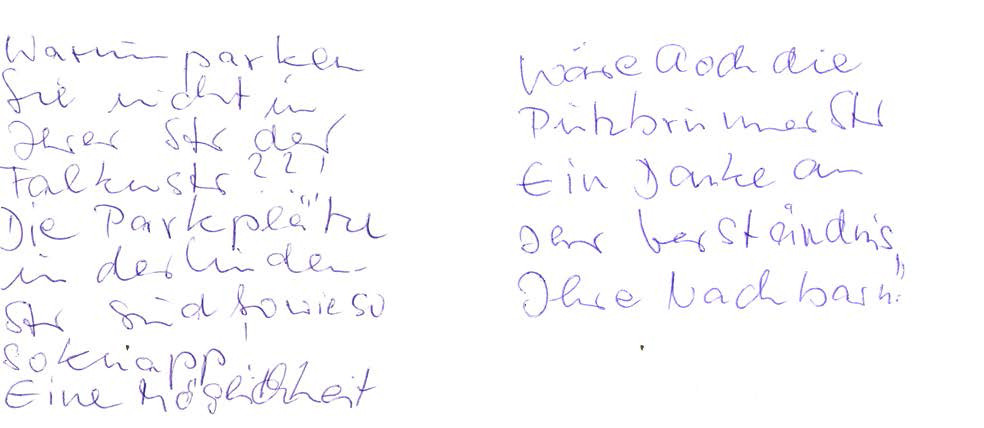 Warum parken
Sie nicht in
Ihrer Str der
Falkenstr ???
Die Parkplätze
in der Linden-
Str sind sowieso
so knapp!
Eine Möglichkeit
Wäre Aoch die
Putzbrunner Str
Ein Danke an
Ihr Verständnis,
Ihre Nachbarn!!